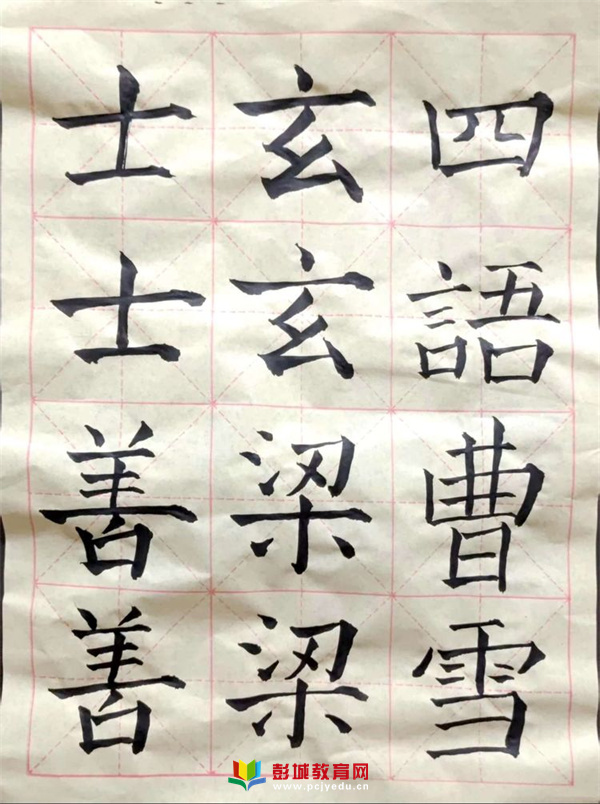 四語曹雪
玄玄梁梁
士士善善
彭城教育网
www.pcjyedu.cn